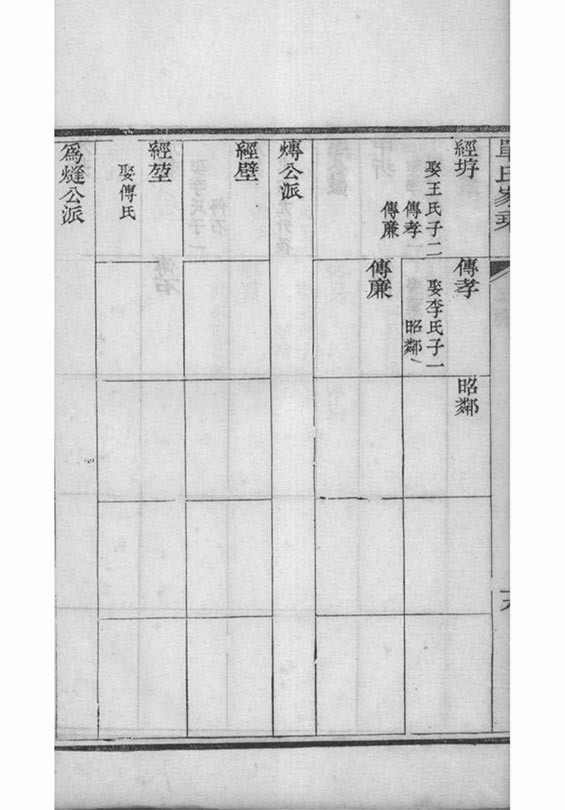 單氏家乘
經垿
娶王氏子二
傳孝
傳廉
傳孝
娶李氏子一
昭鄰
傳廉
昭鄰
煿公派
經壁
經堃
娶傅氏
為熢公派